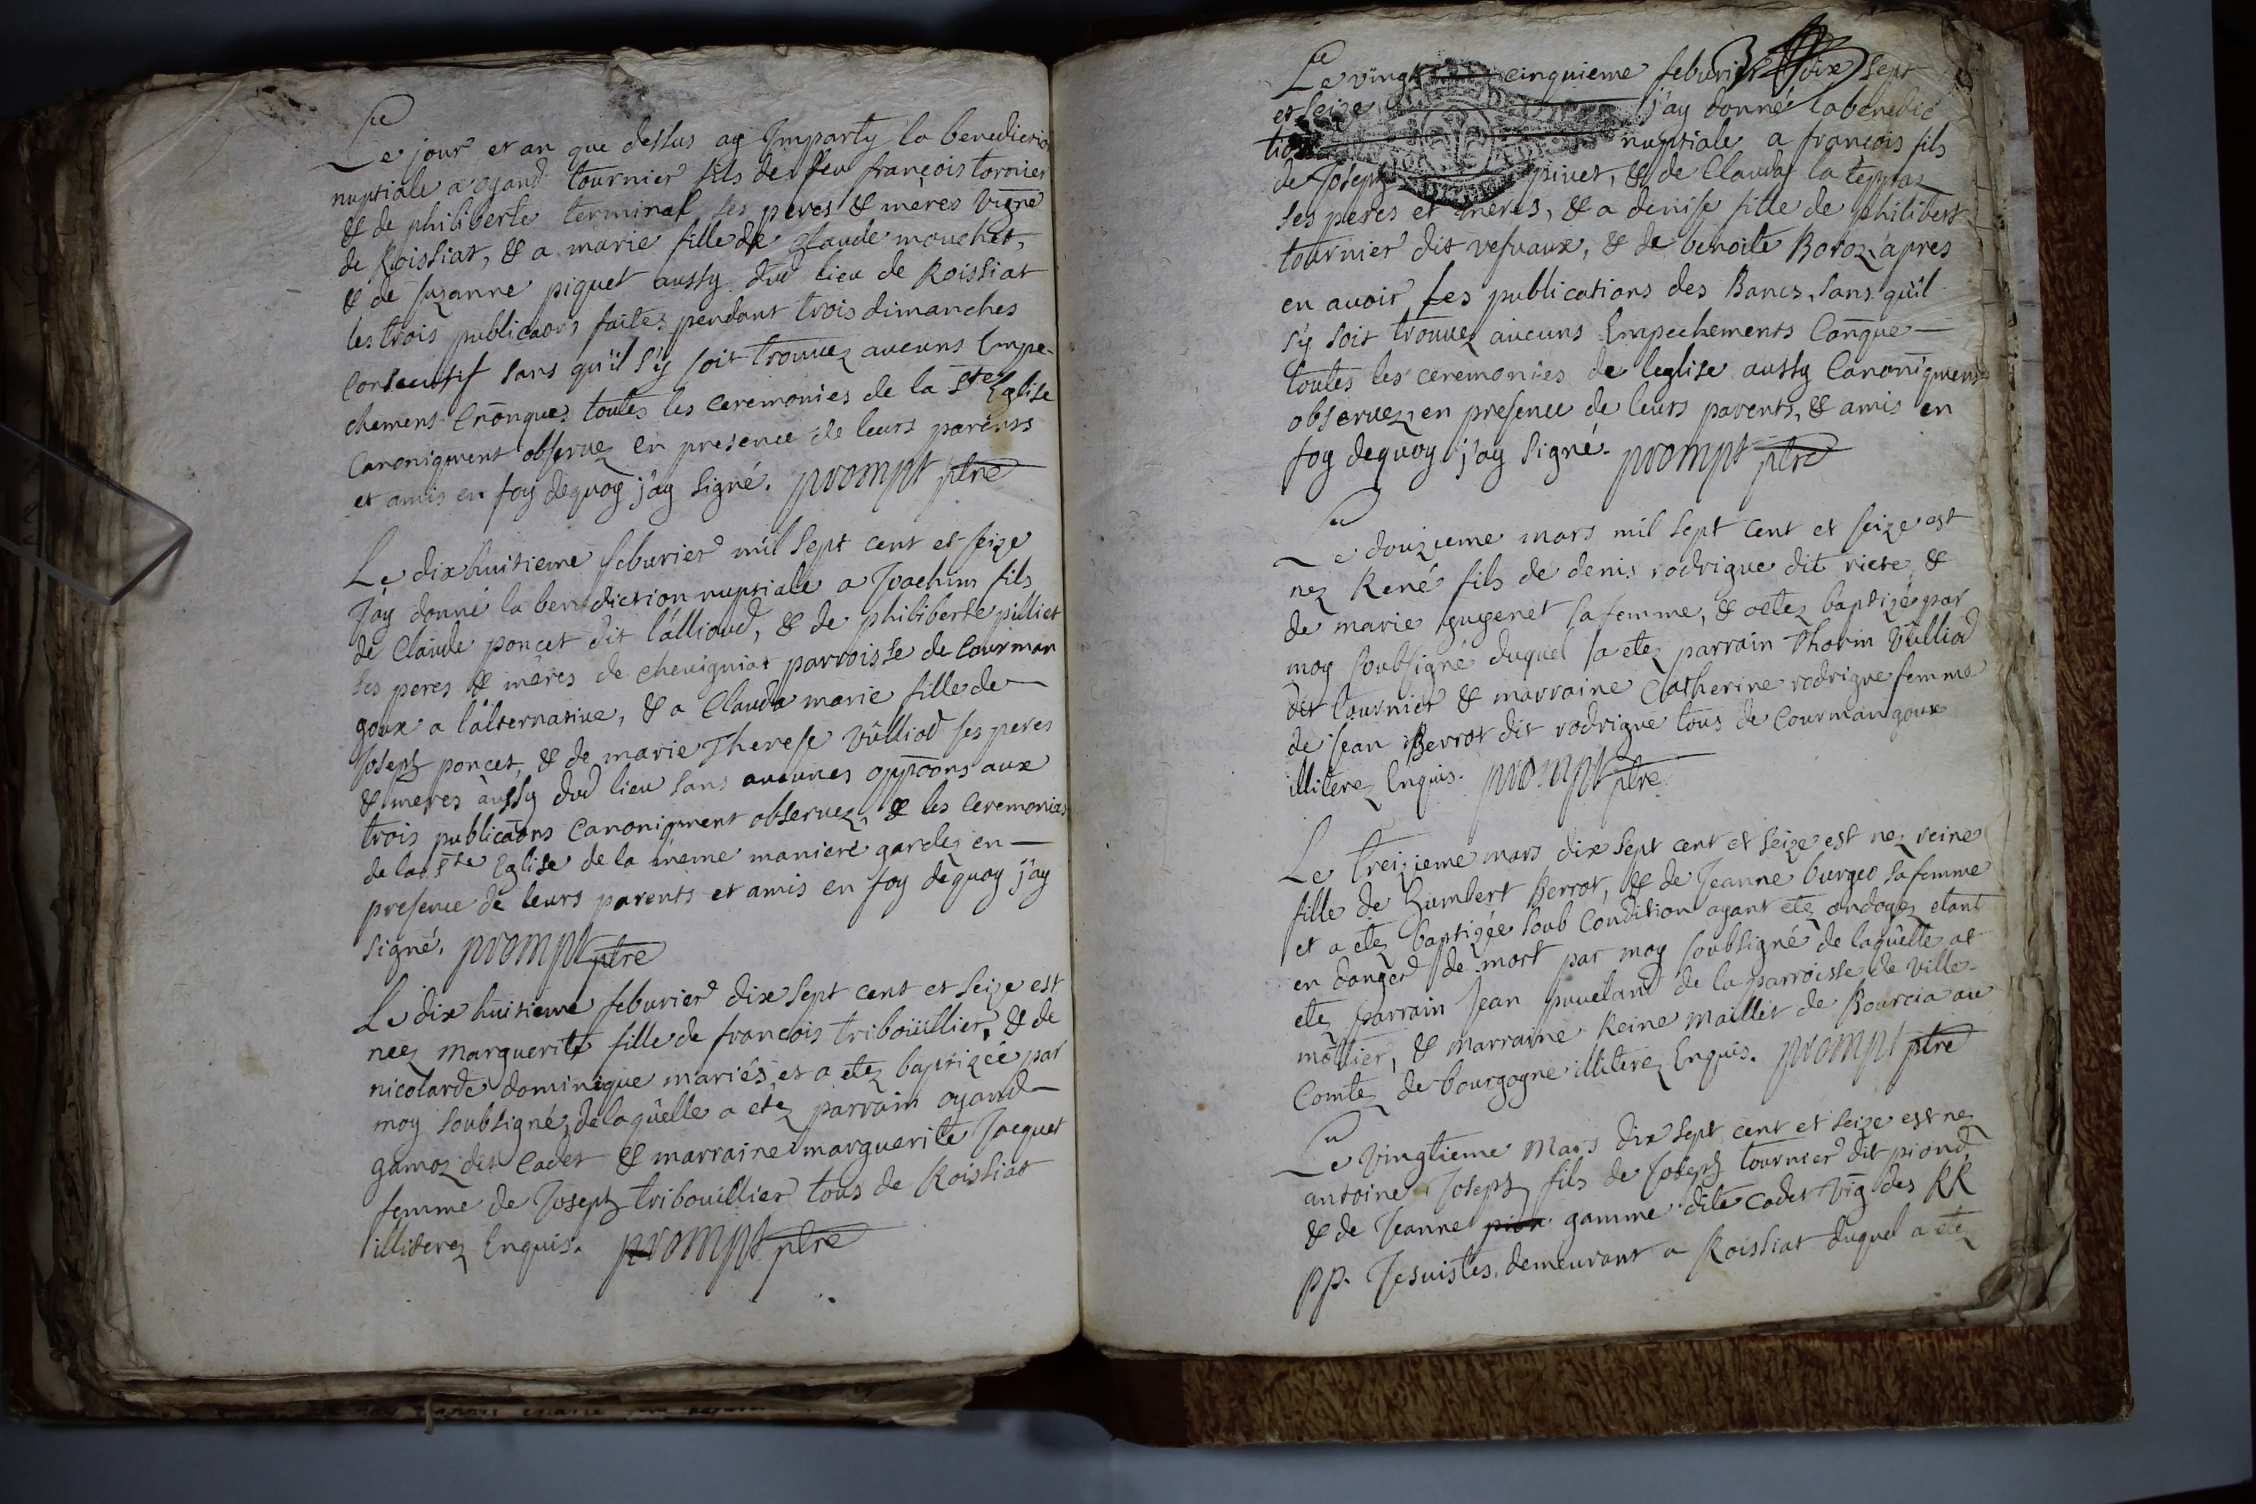 Le jour et an que dessus ay Imparty la benediction
nuptiale a oyand tournier fils de feu françois tornier
& de philiberte terminal ses peres & mères Vigne
de Roissiat, & a marie fille de Claude mouchet,
& de suzanne piquet aussy dud lieu de Roissiat
les trois publicaons faites pendant trois dimanches
Consecutif sans qu'il s'y soit trouvez aucuns Empe-
chemens Cnonques toutes les ceremonies de la Ste Eglise
Canoniqment observez en presence de leurs parents
et amis en foy dequoy j'ay signé. prompt ptre
Le dix huitieme feburier mil sept cent et seize
J'ay donné la benediction nuptiale a Joachim fils
de Claude poncet dit l'alliond, & de philiberte pilliet
ses peres & mères de chevigniat parroisse de Courman
goux a l'alternative, & a Clauda marie fille de
Joseph poncet, & de marie Therese Vulliod ses peres
& meres aussy dud lieu sans aucunes oppoons aux
trois publicaons Canoniqment observez, & les Ceremonies
de la Ste Eglise de la meme maniere gardez en
presence de leurs parents et amis en foy dequoy j'ay
signé. prompt ptre
Le dix huitieme feburier dix sept cent et seize est
neez marguerite fille de françois tribouillier, & de
nicolarde dominique mariés, et a etez baptizée par
moy soubsigné, de laquelle a etez parrain oyand
gamoz dit Cadet & marraine marguerite Jacquet
femme de Joseph tribouillier tous de Roissiat
illiterez Enquis. prompt ptre
Le vingt cinquieme feburier dix sept
et seize j'ay donné la benedic
tion nuptiale a françois fils
de Joseph pivet, & de Clauda la teppaz
ses peres et meres, & a denise fille de philibert
tournier dit vesvaux, & de benoite Boroz apres
en avoir fes publications des Bancs, sans qu'il
s'y soit trouvez aucuns Empechements Canque
toutes les ceremonies de leglise aussy Canoniqment
observez, en presence de leurs parents, & amis en
foy dequoy j'ay signé. prompt ptre
Le douzieme mars mil sept cent et seize est
nez René fils de denis rodrigue dit riete, &
de marie gugenet sa femme, & a etez baptizé par
moy soubsigné duquel a etez parrain Thorin Vulliod
dit tournier & marraine Catherine rodrigue femme
de Jean Berrot dit rodrigue tous de Courmangoux
illiterez Enquis. prompt ptre
Le treizieme mars dix sept cent et seize est nez reine
fille de humbert Berrot, & de Jeanne burgeo sa femme
et a etez baptizée soub Condition ayant etez ondoyez etant
en danger de mort par moy soubsigné de laquelle at
etez parrain Jean puveland de la parroisse de Ville-
mottier, & marraine Reine maillet de Bourcia au
Comtez de bourgogne illiterez Enquis. prompt ptre
Le Vingtieme Mars dix sept cent et seize est nez
antoine Joseph fils de Joseph tournier dit piond,
& de Jeanne gamme dite cadet Vig des RR
pp. Jesuistes, demeurant a Roissiat duquel a etez